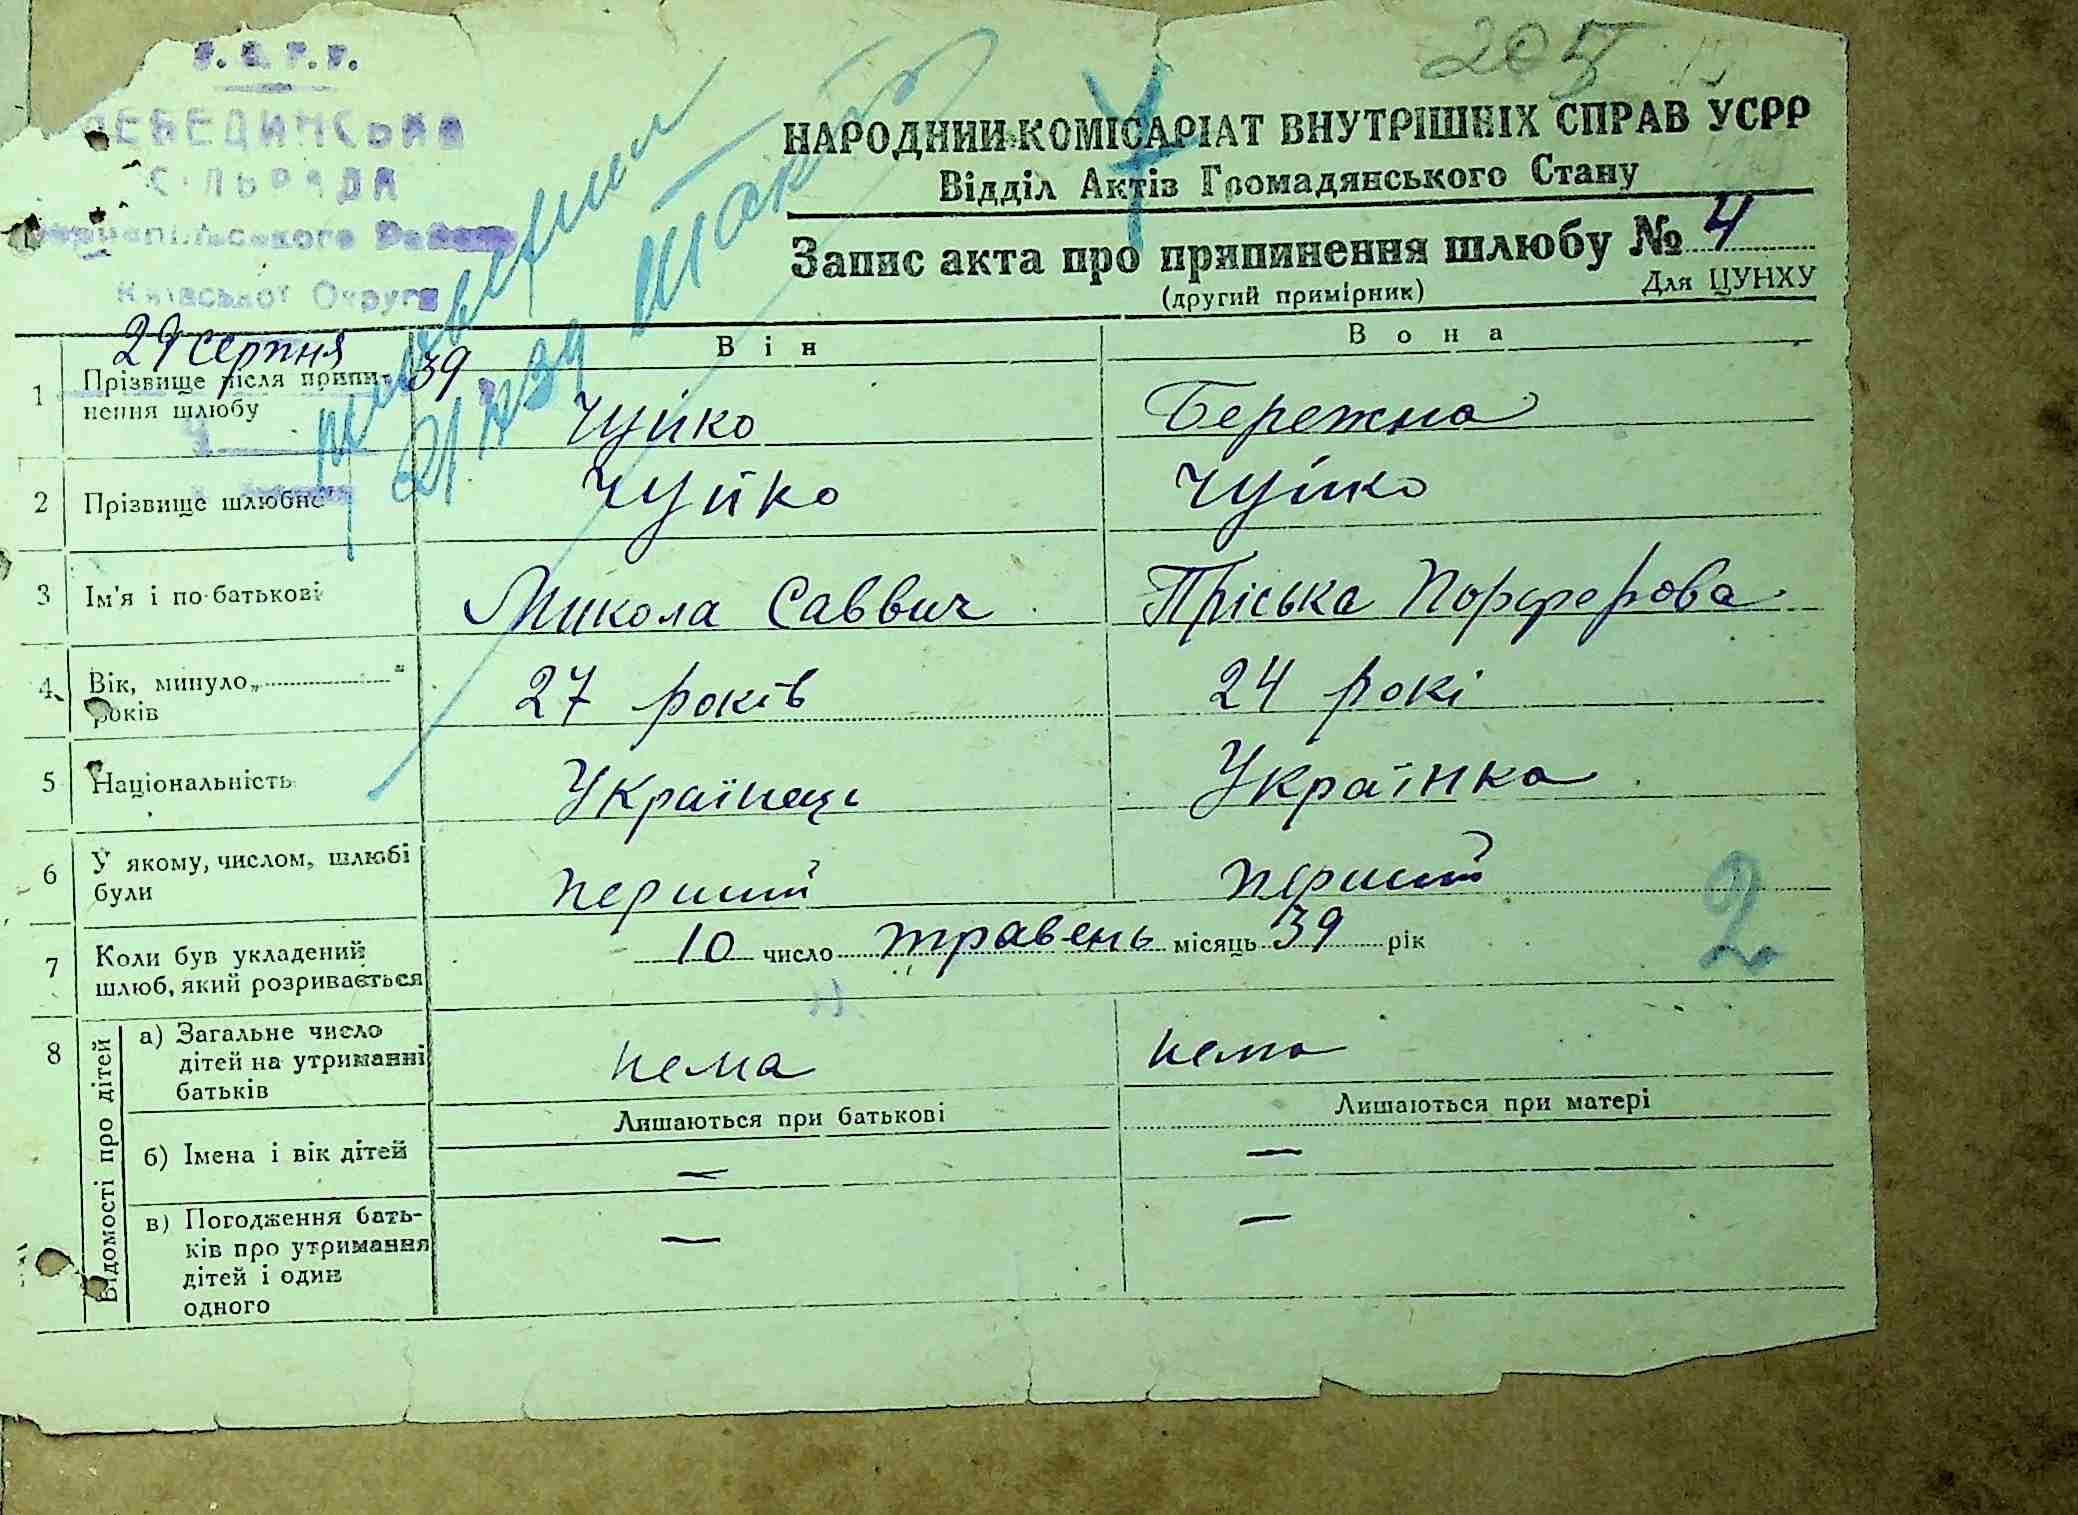 205
У. С. Р. Р.
ЛЕБЕДИНСЬКА
СІЛЬРАДА
Київської Округи
29 серпня 39
НАРОДНИЙ КОМІСАРІАТ ВНУТРІШНІХ СПРАВ УСРР
Відділ Актів Громадянського Стану
Запис акта про припинення шлюбу № 4
(другий примірник) Для ЦУНХУ
Він Вона
1 Прізвище після припи-
нення шлюбу Чуйко Бережна
2 Прізвище шлюбне Чуйко Чуйко
3 Ім'я і по-батькові Микола Саввич Пріська Порферова
4 Вік, минуло „ “
років 27 років 24 рокі
5 Національність Українець Українка
6 У якому, числом, шлюбі
були перший перший
7 Коли був укладений
шлюб, який розривається 10 число травень місяць 39 рік
2
8 Відомості про дітей
а) Загальне число
дітей на утриманні
батьків нема нема
Лишаються при батькові Лишаються при матері
б) Імена і вік дітей — —
в) Погодження бать-
ків про утримання
дітей і один
одного — —